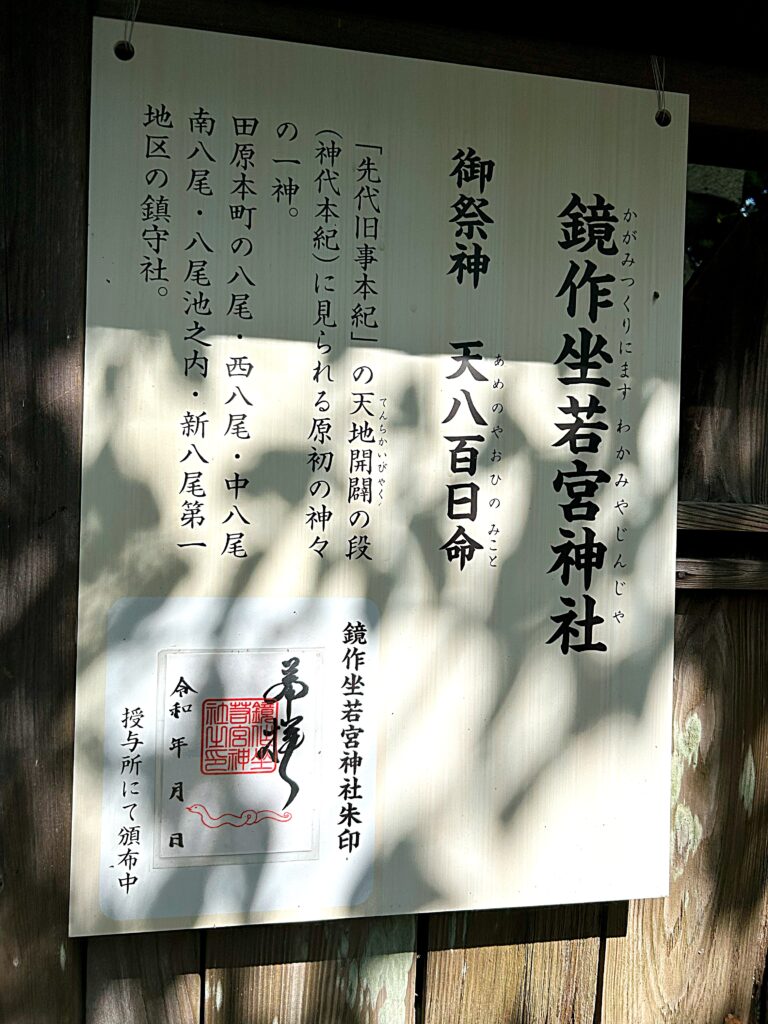 鏡作坐若宮神社
かがみつくりにます わかみやじんじゃ
御祭神 天八百日命
あめのやおひの みこと
「先代旧事本紀」の天地開闢の段
てんちかいびゃく
(神代本紀)に見られる原初の神々
の一神。
田原本町の八尾・西八尾・中八尾
南八尾・八尾池之内・新八尾第一
地区の鎮守社。
鏡作坐若宮神社朱印
奉拝
鏡作坐
若宮神
社之印
令和 年 月 日
授与所にて頒布中